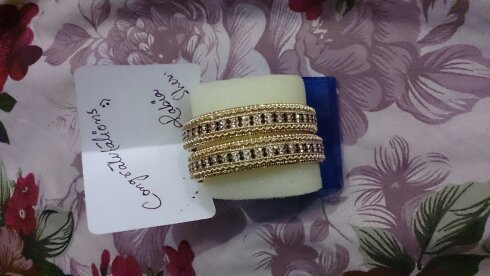 Congratulations :)
Rabia